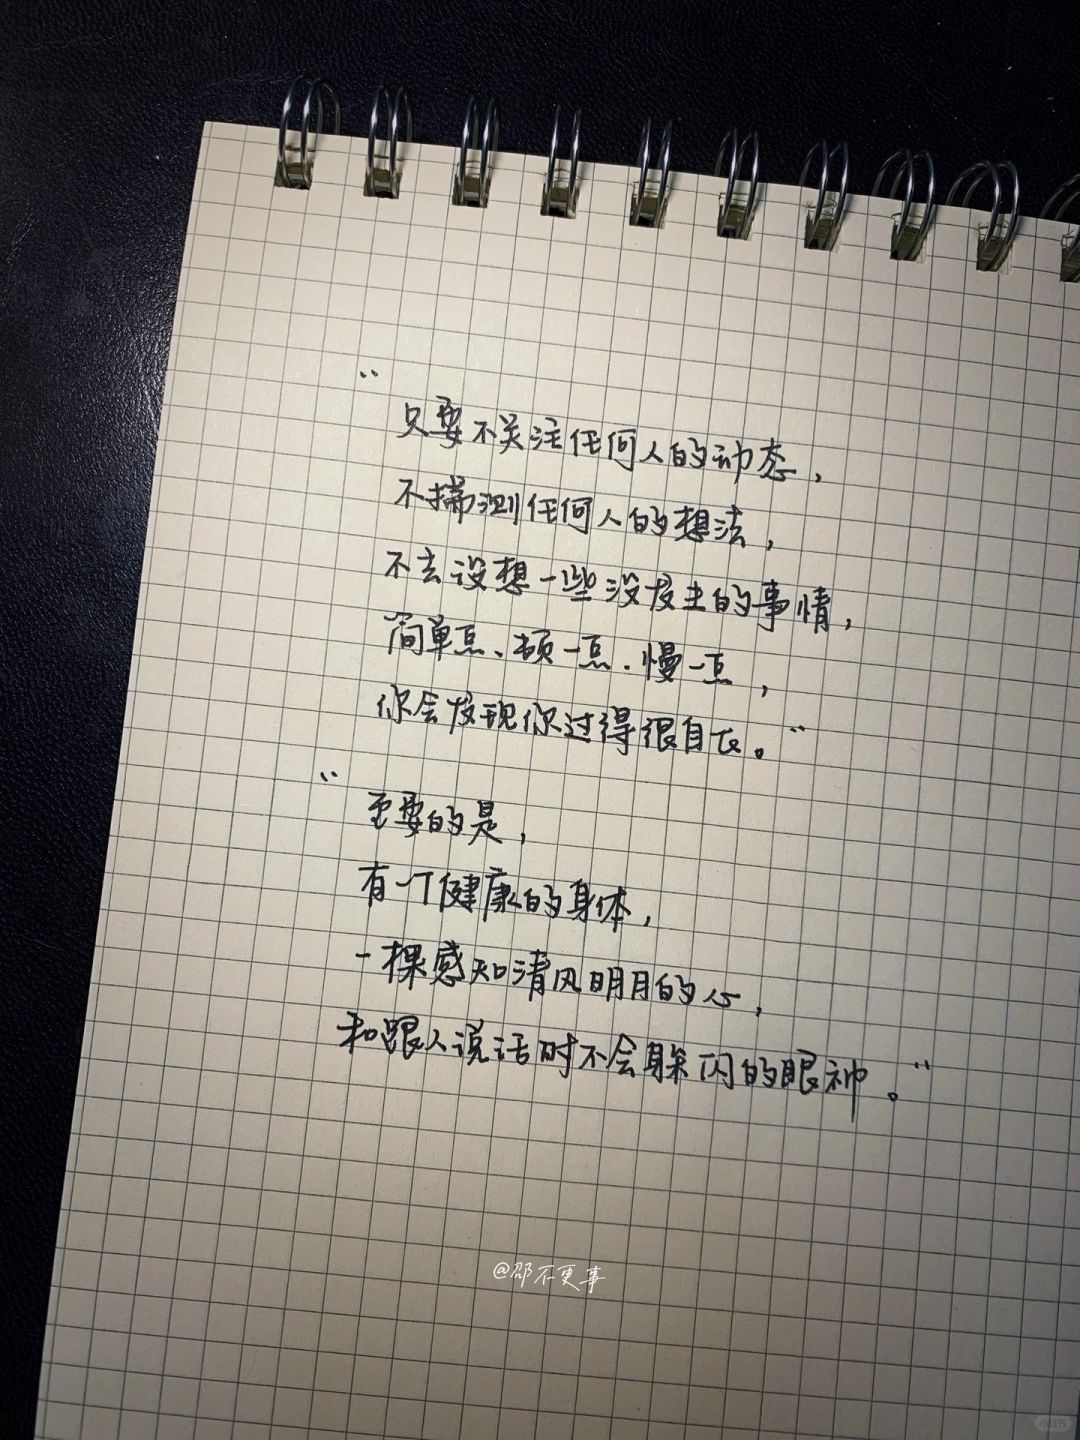 “只要不关注任何人的动态，
不揣测任何人的想法，
不去设想一些没发生的事情，
简单点、顿一点、慢一点，
你会发现你过得很自在。”
“重要的是，
有一个健康的身体，
一棵感知清风明月的心，
和跟人说话时不会躲闪的眼神。”
@邵不更事
小红书